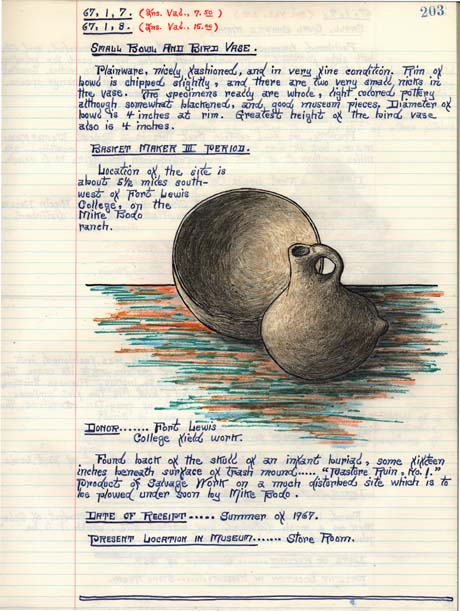 203
67,1,7. (Ins. Val., 7.50)
67,1,8. (Ins. Val., 15.00)
SMALL BOWL AND BIRD VASE.
Plainware, nicely fashioned, and in very fine condition. Rim of
bowl is chipped slightly, and there are two very small nicks in
the vase. The specimens really are whole, light colored pottery
although somewhat blackened, and, good museum pieces. Diameter of
bowl is 4 inches at rim. Greatest height of the bird vase
also is 4 inches.
BASKET MAKER III PERIOD.
Location of the site is
about 5½ miles south-
west of Fort Lewis
College, on the
Mike Bodo
ranch.
DONOR....... Fort Lewis
College field work.
Found back of the skull of an infant burial, some fifteen
inches beneath surface of trash mound..... "Pastore Ruin, No. 1."
Product of Salvage Work on a much disturbed site which is to
be plowed under soon by Mike Bodo.
DATE OF RECEIPT..... Summer of 1967.
PRESENT LOCATION IN MUSEUM...... Store Room.